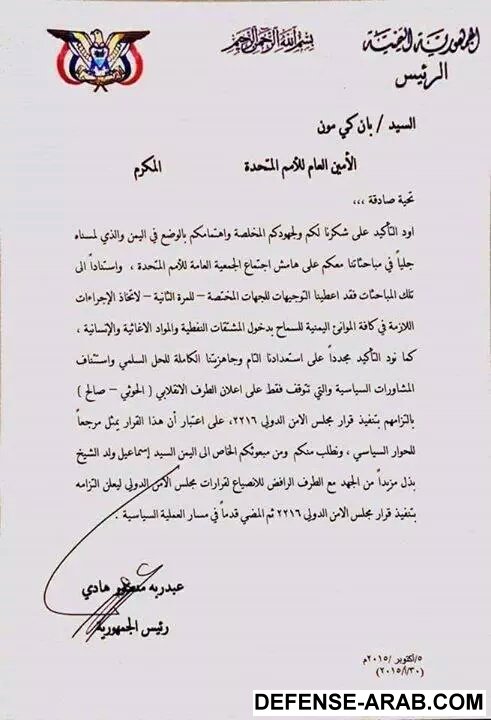 بسم الله الرحمن الرحيم
الجمهورية اليمنية
الرئيس
السيد / بان كي مون
الأمين العام للأمم المتحدة المكرم
تحية صادقة ،،،
اود التأكيد على شكرنا لكم ولجهودكم المخلصة واهتمامكم بالوضع في اليمن والذي لمسناه
جلياً في مباحثاتنا معكم على هامش اجتماع الجمعية العامة للأمم المتحدة ، واستناداً الى
تلك المباحثات فقد اعطينا التوجيهات للجهات المختصة – للمرة الثانية – لاتخاذ الإجراءات
اللازمة في كافة الموانئ اليمنية للسماح بدخول المشتقات النفطية والمواد الاغاثية والإنسانية ،
كما نود التأكيد مجدداً على استعدادنا التام وجاهزيتنا الكاملة للحل السلمي واستئناف
المشاورات السياسية والتي تتوقف فقط على اعلان الطرف الانقلابي ( الحوثي – صالح )
بالتزامهم بتنفيذ قرار مجلس الامن الدولي ٢٢١٦، على اعتبار أن هذا القرار يمثل مرجعاً
للحوار السياسي ، ونطلب منكم ومن مبعوثكم الخاص الى اليمن السيد إسماعيل ولد الشيخ
بذل مزيداً من الجهد مع الطرف الرافض للانصياع لقرارات مجلس الامن الدولي ليعلن التزامه
بتنفيذ قرار مجلس الامن الدولي ٢٢١٦ ثم المضي قدماً في مسار العملية السياسية .
عبدربه منصور هادي
رئيس الجمهورية
٥/أكتوبر /٢٠١٥م
DEFENSE-ARAB.COM